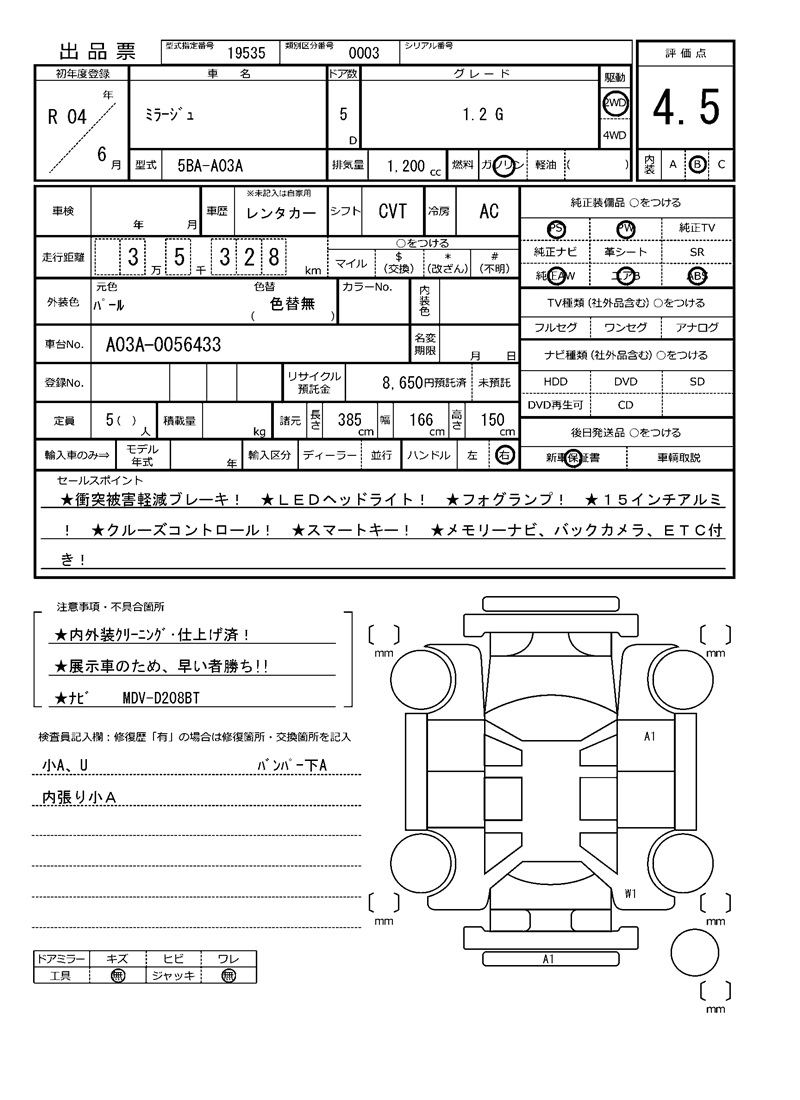 出品票 型式指定番号 19535 類別区分番号 0003 シリアル番号
評価点
4.5
内装 A B C
初年度登録 車名 ドア数 グレード 駆動
R 04 年 6 月 ミラージュ 5 D 1.2 G 2WD
4WD
型式 5BA-A03A 排気量 1,200 cc 燃料 ガソリン 軽油 ( )
車検 年 月 車歴 ※未記入は自家用
レンタカー シフト CVT 冷房 AC
走行距離 3 万 5 千 3 2 8 km
○をつける
マイル $(交換) *(改ざん) #(不明)
外装色 元色 パール 色替 ( 色替無 ) カラーNo. 内装色
車台No. A03A-0056433 名変期限 月 日
登録No. リサイクル預託金 8,650円預託済 未預託
定員 5( )人 積載量 kg 諸元 長さ 385cm 幅 166cm 高さ 150cm
輸入車のみ⇒ モデル年式 年 輸入区分 ディーラー 並行 ハンドル 左 右
純正装備品 ○をつける
PS PW 純正TV
純正ナビ 革シート SR
純正AW エアB ABS
TV種類(社外品含む)○をつける
フルセグ ワンセグ アナログ
ナビ種類(社外品含む)○をつける
HDD DVD SD
DVD再生可 CD
後日発送品 ○をつける
新車保証書 車輌取説
セールスポイント
★衝突被害軽減ブレーキ！ ★ＬＥＤヘッドライト！ ★フォグランプ！ ★１５インチアルミ
！ ★クルーズコントロール！ ★スマートキー！ ★メモリーナビ、バックカメラ、ＥＴＣ付
き！
注意事項・不具合箇所
★内外装ｸﾘｰﾆﾝｸﾞ･仕上げ済！
★展示車のため、早い者勝ち!!
★ﾅﾋﾞ MDV-D208BT
検査員記入欄：修復歴「有」の場合は修復箇所・交換箇所を記入
小A、U ﾊﾞﾝﾊﾟｰ下A
内張り小Ａ
ドアミラー キズ ヒビ ワレ
工具 無 ジャッキ 無
mm mm
A1
W1
mm mm
A1
mm